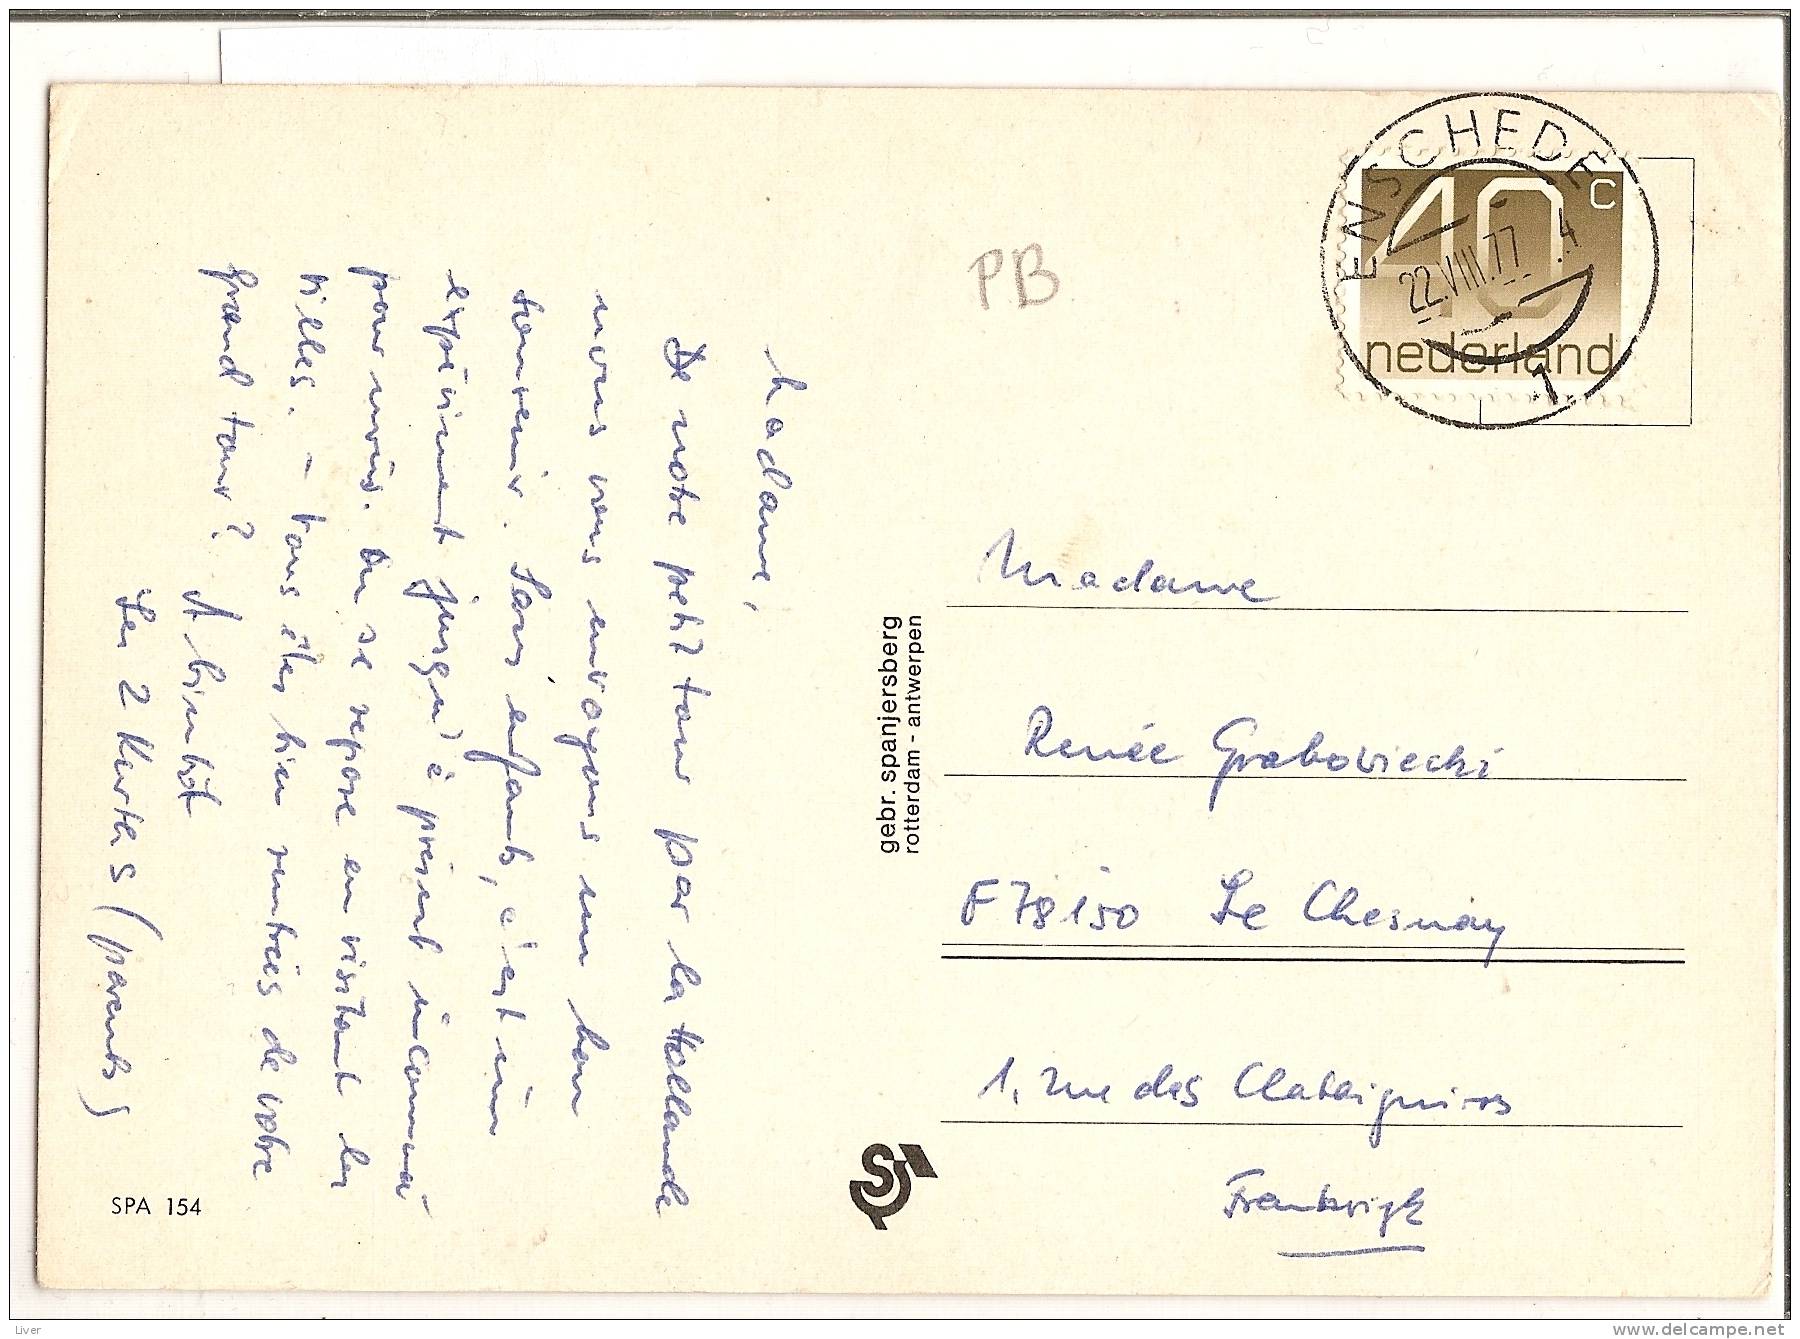 Madame,
De notre petit tour par la Hollande
nous vous envoyons un bon
souvenir. Sans enfants, c'est un
expériment jusqu'à présent inconnu
pour nous. On se repose en visitant les
villes. – Vous êtes bien rentrées de votre
grand tour?
A bientôt
Les 2 (parents)
SPA 154
gebr. spanjersberg
rotterdam - antwerpen
PB
ENSCHEDE
22.VIII.77 .4
1
40 c
nederland
Madame
Renée Grabowiecki
F 78150 Le Chesnay
1, rue des
Frankrijk
Liver
delcampe.net